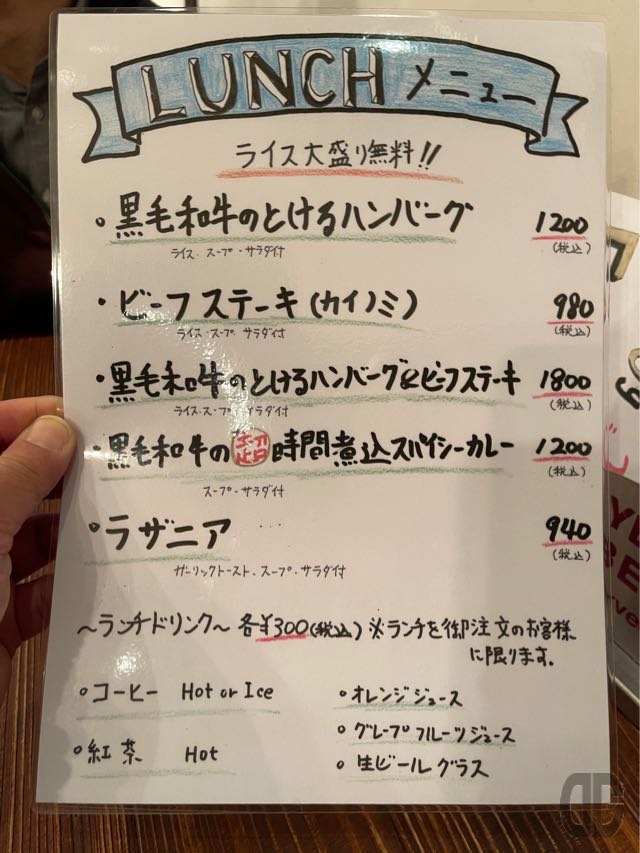 LUNCH メニュー
ライス大盛り無料!!
・黒毛和牛のとけるハンバーグ 1200
ライス・スープ・サラダ付 (税込)
・ビーフステーキ(カイノミ) 980
ライス・スープ サラダ付 (税込)
・黒毛和牛のとけるハンバーグ&ビーフステーキ 1800
ライス・スープ サラダ付 (税込)
・黒毛和牛の超時間煮込スパイシーカレー 1200
スープ・サラダ付 (税込)
・ラザニア 940
ガーリックトースト・スープ・サラダ付 (税込)
～ランチドリンク～ 各¥300(税込) ※ランチを御注文のお客様
に限ります。
・コーヒー Hot or Ice
・紅茶 Hot
・オレンジジュース
・グレープフルーツジュース
・生ビールグラス